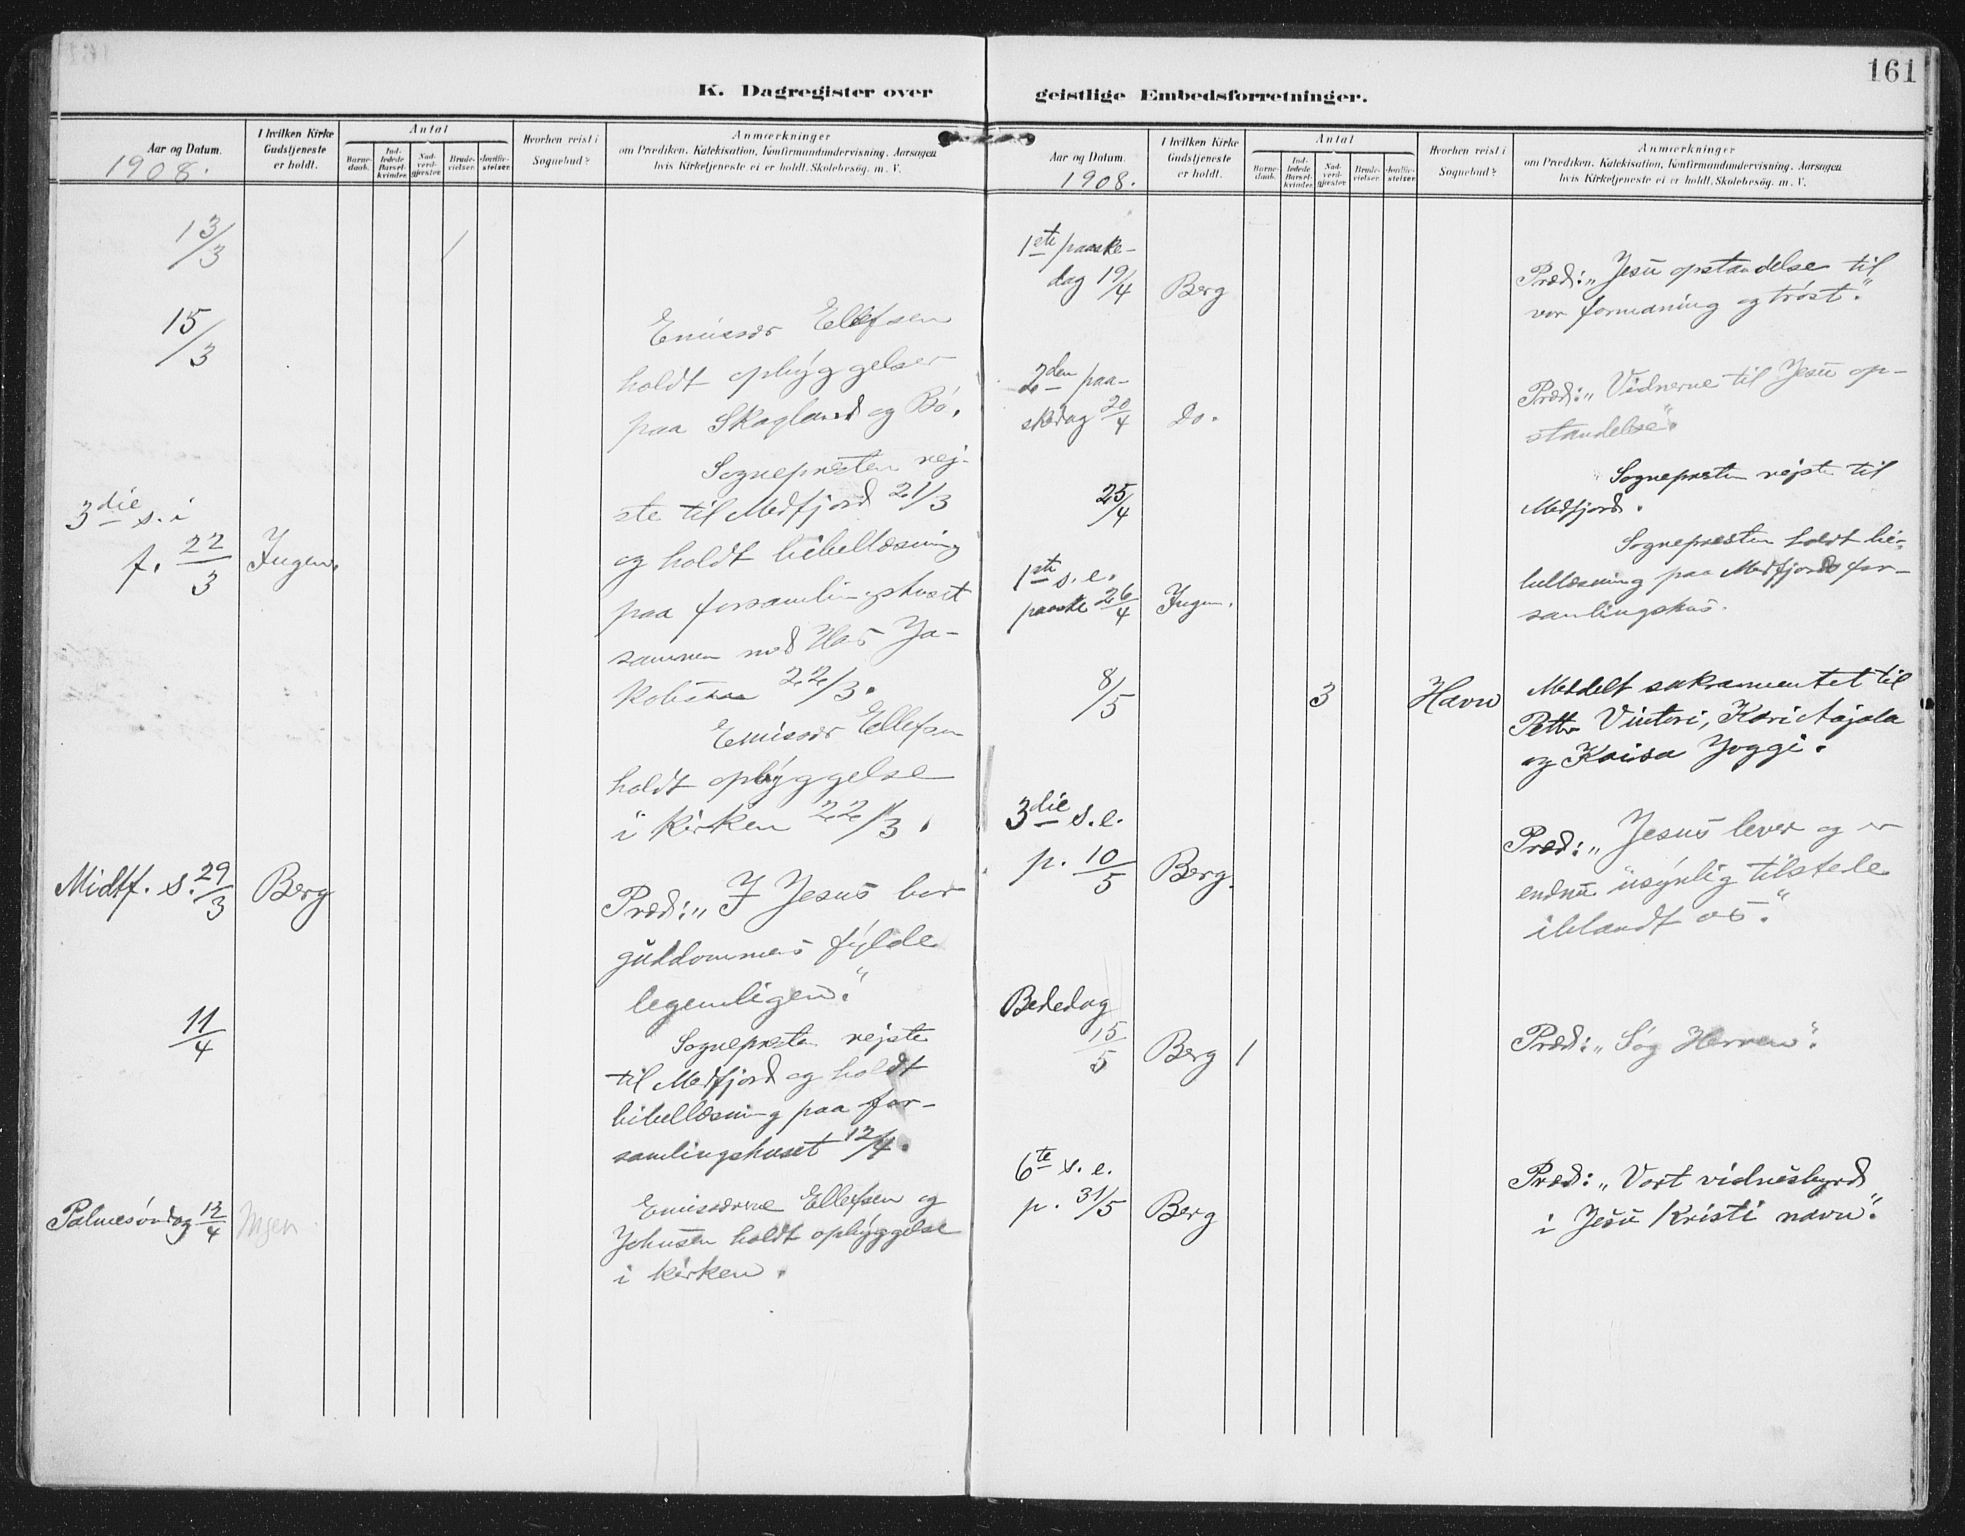 161
K. Dagregister over
Aar og Datum.
1908.
I hvilken Kirke
Gudstjeneste
er holdt.
Antal
Barne-
daab.
Ind-
ledede
Barsel-
kvinder.
Nad-
verd-
gjæster.
Brude-
vielser.
Jordfæ-
stelser.
Hvorhen reist i
Sognebud?
Anmærkninger
om Prædiken, Katekisation, Konfirmandundervisning, Aarsagen
hvis Kirketjeneste ei er holdt, Skolebesøg, m. V.
13/3
1
15/3
Emissær Ellefsen
holdt opbyggelser
paa Skagland og Bö.
3die s. i
f. 22/3
Ingen.
Sognepresten rej-
ste til Medfjord 21/3
og holdt bibellæsning
paa forsamlingshuset
sammen med Hos Ja-
22/3.
Emissær Ellefsen
holdt opbyggelse
i kirken 22/3.
Midtf. s. 29/3
Berg
Præd: „I Jesus bor
guddommens fylde
legemligen“.
11/4
Sognepresten rejste
til Medfjord og holdt
bibellæsning paa for-
samlingshuset 12/4.
Palmesöndag 12/4
Ingen
Emissærene Ellefsen og
Johnsen holdt opbyggelse
i kirken.
geistlige Embedsforretninger.
Aar og Datum.
1908.
I hvilken Kirke
Gudstjeneste
er holdt.
Antal
Barne-
daab.
Ind-
ledede
Barsel-
kvinder.
Nad-
verd-
gjæster.
Brude-
vielser.
Jordfæ-
stelser.
Hvorhen reist i
Sognebud?
Anmærkninger
om Prædiken, Katekisation, Konfirmandundervisning, Aarsagen
hvis Kirketjeneste ei er holdt, Skolebesøg, m. V.
1ste paaske-
dag 19/4
Berg
Præd: „Jesu opstandelse til
vor formaning og tröst“.
2den paa-
skedag 20/4
Do.
Præd: „Vidnerne til Jesu op-
standelse“.
25/4
Sognepresten rejste til
Medfjord.
1ste s. e.
paaske 26/4
Ingen.
Sognepresten holdt bi-
bellæsning paa Medfjords for-
samlingshus.
8/5
3
Havn
Meddelt sakramentet til
Petter Vinteri, Kari Aajala
og Kaisa Joggi.
3die s. e.
p. 10/5
Berg.
Præd: „Jesus lever og er
endnu usynlig tilstede
iblandt os“.
Bededag
15/5
Berg
1
Præd: „Søg Herren“.
6te s. e.
p. 31/5
Berg
Præd: „Vort vidnesbyrd
i Jesu Kristi navn“.